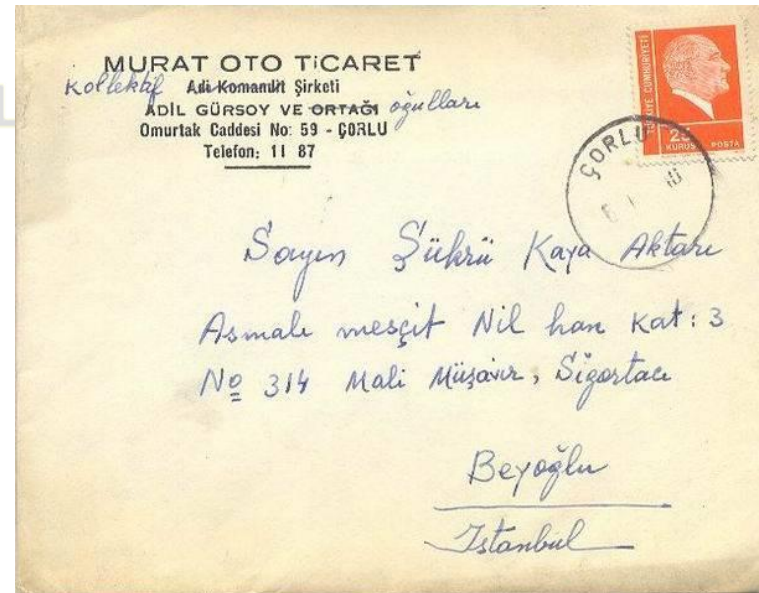 MURAT OTO TiCARET
Kollektif Adi Komandit Şirketi
ADİL GÜRSOY VE ORTAĞI oğulları
Omurtak Caddesi No: 59 - ÇORLU
Telefon: 11 87
TÜRKİYE CUMHURİYETİ
25
KURUŞ POSTA
ÇORLU
Sayın Şükrü Kaya Aktarı
Asmalı mesçit Nil han Kat: 3
No 314 Mali Müşavir, Sigortacı
Beyoğlu
Istanbul